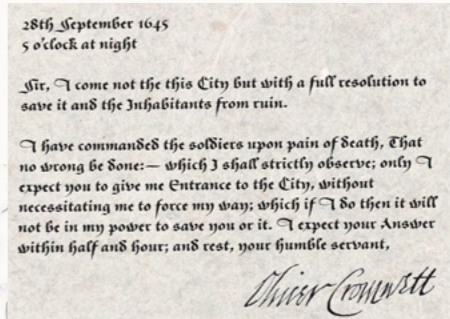 28th September 1645
5 o'clock at night
Sir, I come not the this City but with a full resolution to
save it and the Inhabitants from ruin.
I have commanded the soldiers upon pain of death, That
no wrong be done:— which I shall strictly observe; only I
expect you to give me Entrance to the City, without
necessitating me to force my way; which if I do then it will
not be in my power to save you or it. I expect your Answer
within half and hour; and rest, your humble servant,
Oliver Cromwell